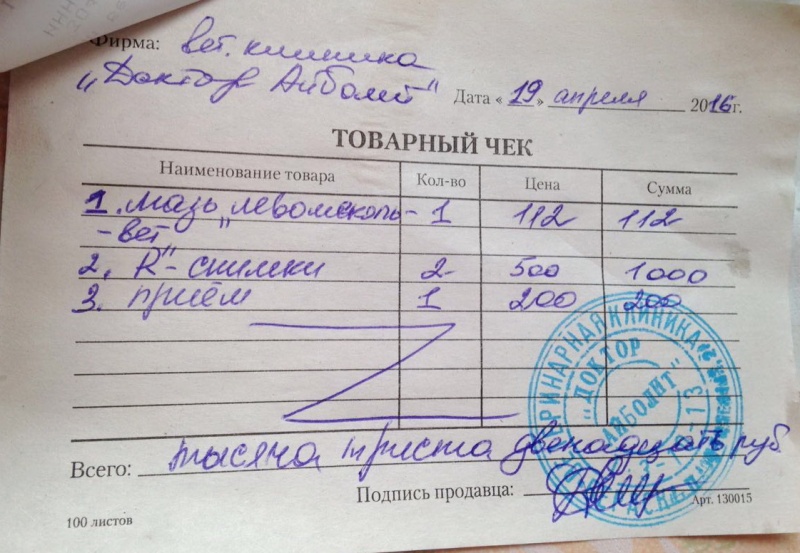 Фирма: вет. клиника
"Доктор Айболит" Дата «19» апреля 2016г.
ТОВАРНЫЙ ЧЕК
Наименование товара Кол-во Цена Сумма
1. мазь "левомеколь- 1 112 112
-вет"
2. R-снимки 2 500 1000
3. приём 1 200 200
Всего: тысяча триста двенадцать руб
Подпись продавца:
Арт. 130015
100 листов
ВЕТЕРИНАРНАЯ КЛИНИКА
"ДОКТОР
АЙБОЛИТ"